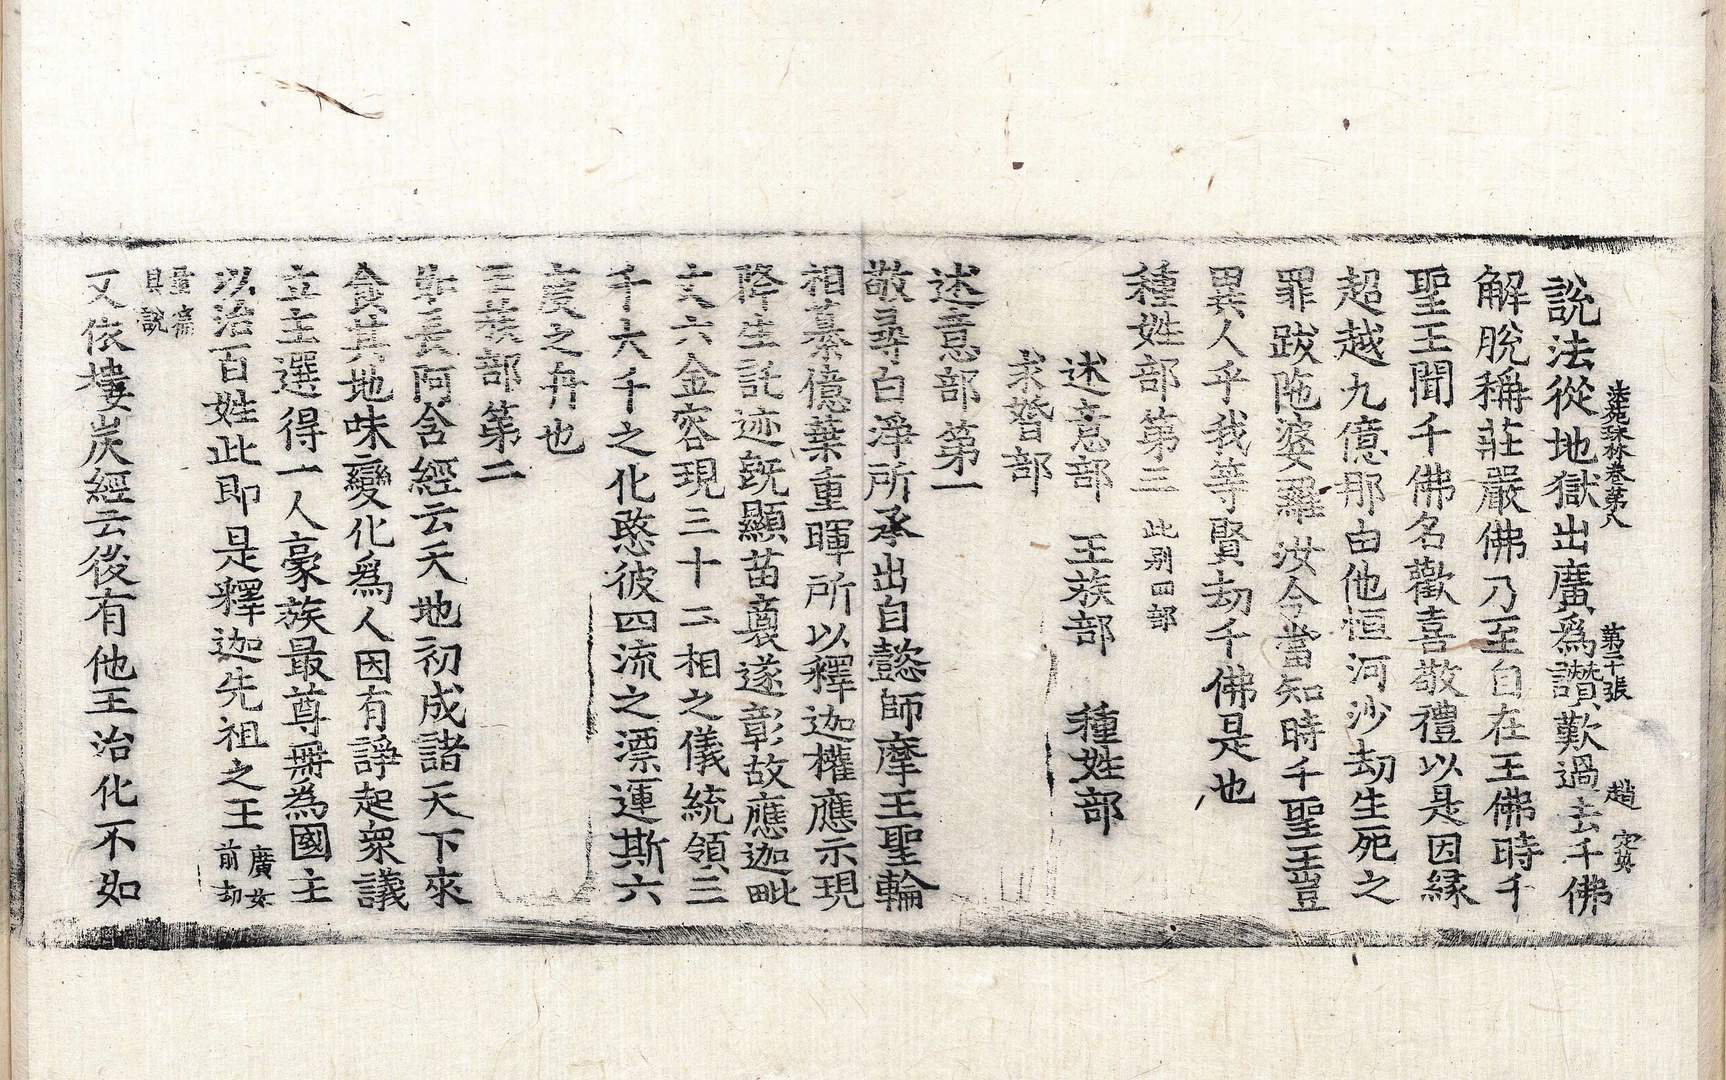 法苑珠林卷第八 第二十張 趙 定英
說法從地獄出廣爲讚歎過去千佛
解脫稱莊嚴佛乃至自在王佛時千
聖王聞千佛名歡喜敬禮以是因緣
超越九億那由他恒河沙劫生死之
罪跋陁婆羅汝今當知時千聖王豈
異人乎我等賢劫千佛是也
種姓部第三 此別四部
述意部 王族部 種姓部
求婚部
述意部第一
敬尋白淨所承出自懿師摩王聖輪
相纂億葉重暉所以釋迦權應示現
降生託迹旣顯苗裔遂彰故應迦毗
丈六金容現三十二相之儀統領三
千大千之化愍彼四流之漂運斯六
度之舟也
王族部第二
如長阿含經云天地初成諸天下來
食其地味變化爲人因有諍起衆議
立主選得一人豪族最尊無為國主
以治百姓此即是釋迦先祖之王 廣如前劫
量篇具說
又依樓炭經云後有他王治化不如